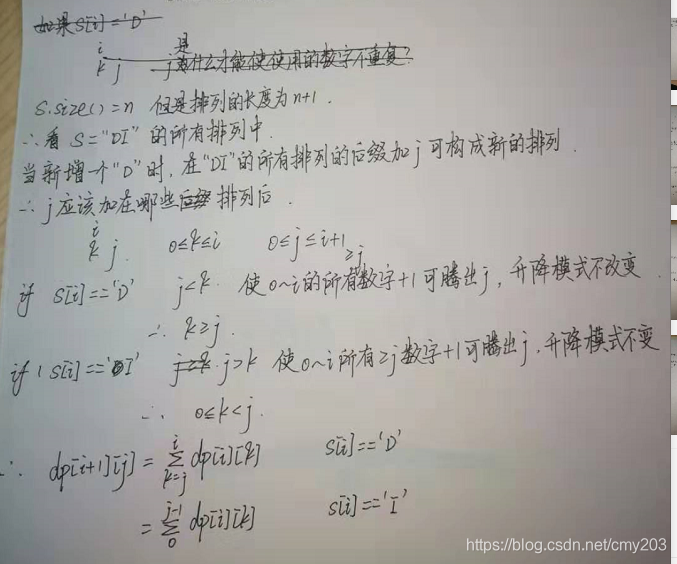 如果S[i]=='D'
i 是
k j j为什么才能使使用的数字不重复?
S.size()=n 但是排列的长度为n+1.
∴看 S="DI" 的所有排列中.
当新增一个"D"时, 在"DI"的所有排列的后缀加j可构成新的排列.
∴ j应该加在哪些后缀排列后.
i
k j. 0≤k≤i 0≤j≤i+1
≥j
if S[i]=='D' j<k. 使0~i的所有数字+1可腾出j, 升降模式不改变.
∴ k≥j.
if S[i]=='I' j>k j>k 使0~i所有≥j数字+1可腾出j, 升降模式不变
∴ 0≤k<j.
∴ dp[i+1][j] = ∑_{k=j}^{i} dp[i][k] S[i]=='D'
= ∑_{0}^{j-1} dp[i][k] S[i]=='I'
https://blog.csdn.net/cmy203